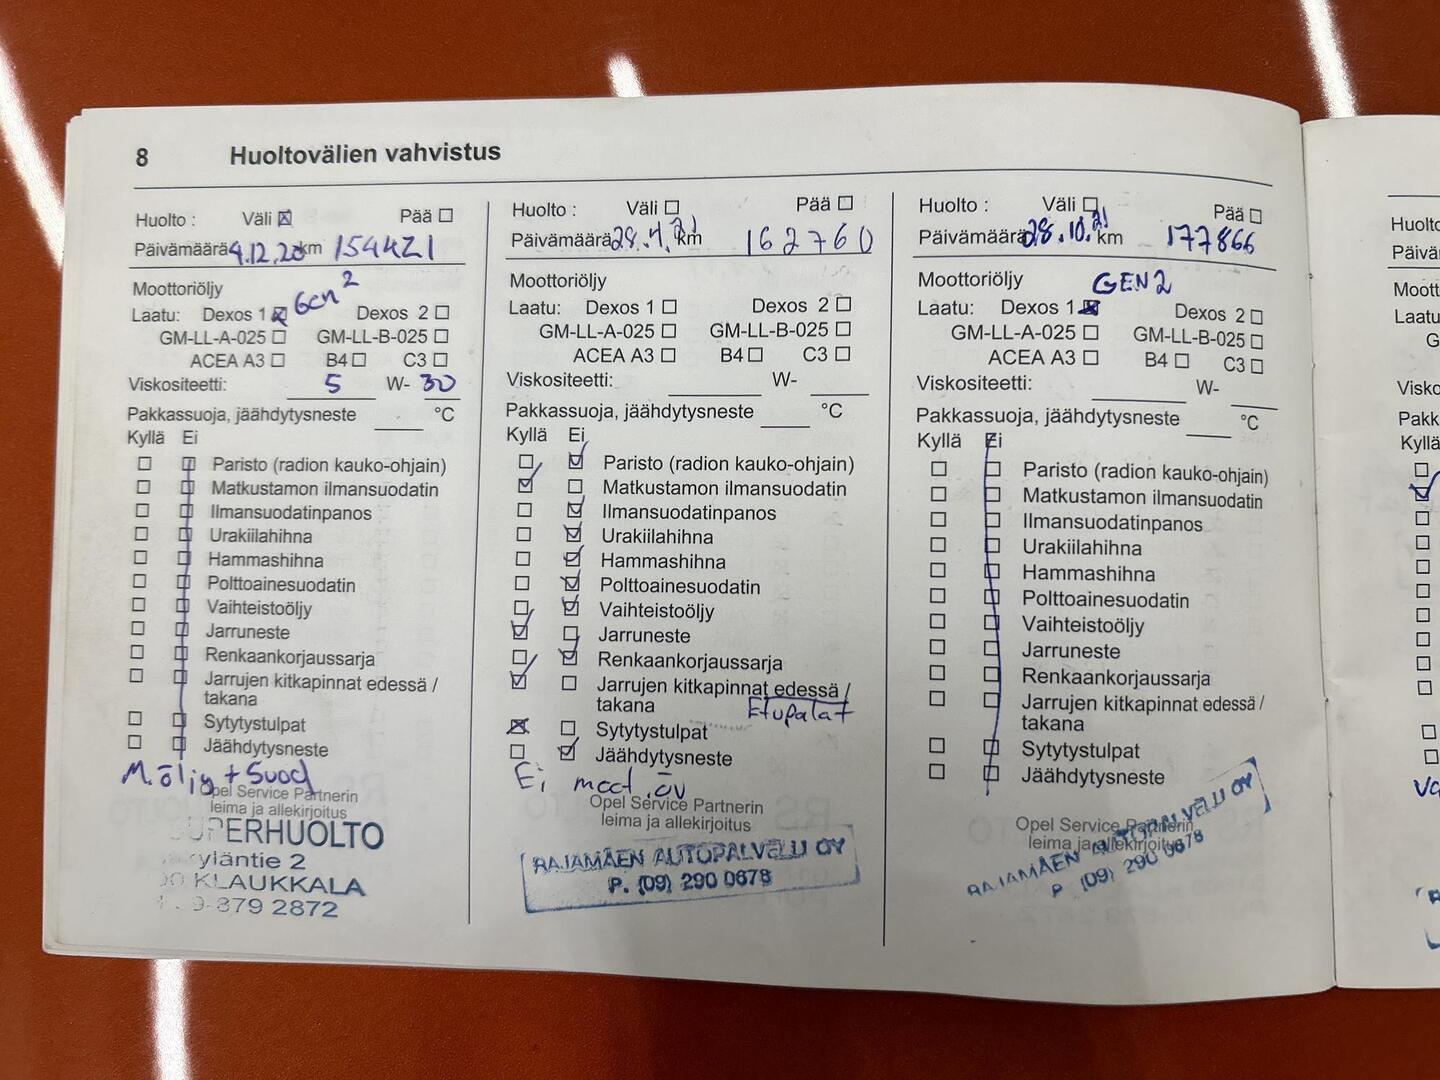 8 Huoltovälien vahvistus
Huolto : Väli ☒ Pää ☐
Päivämäärä 4.12.20 km 154421
Moottoriöljy
Gen 2
Laatu: Dexos 1 ☒ Dexos 2 ☐
GM-LL-A-025 ☐ GM-LL-B-025 ☐
ACEA A3 ☐ B4 ☐ C3 ☐
Viskositeetti: 5 W- 30
Pakkassuoja, jäähdytysneste ____ °C
Kyllä Ei
Paristo (radion kauko-ohjain)
Matkustamon ilmansuodatin
Ilmansuodatinpanos
Urakiilahihna
Hammashihna
Polttoainesuodatin
Vaihteistoöljy
Jarruneste
Renkaankorjaussarja
Jarrujen kitkapinnat edessä /
takana
Sytytystulpat
Jäähdytysneste
M.öljy + Suod
Opel Service Partnerin
leima ja allekirjoitus
SUPERHUOLTO
yläntie 2
KLAUKKALA
9-879 2872
Huolto : Väli ☐ Pää ☐
Päivämäärä 28.4.21 km 162760
Moottoriöljy
Laatu: Dexos 1 ☐ Dexos 2 ☐
GM-LL-A-025 ☐ GM-LL-B-025 ☐
ACEA A3 ☐ B4 ☐ C3 ☐
Viskositeetti: ____ W- ____
Pakkassuoja, jäähdytysneste ____ °C
Kyllä Ei
Paristo (radion kauko-ohjain)
Matkustamon ilmansuodatin
Ilmansuodatinpanos
Urakiilahihna
Hammashihna
Polttoainesuodatin
Vaihteistoöljy
Jarruneste
Renkaankorjaussarja
Jarrujen kitkapinnat edessä /
takana Etupalat
Sytytystulpat
Jäähdytysneste
Ei moot.öv
Opel Service Partnerin
leima ja allekirjoitus
RAJAMÄEN AUTOPALVELU OY
P. (09) 290 0678
Huolto : Väli ☐ Pää ☐
Päivämäärä 28.10.21 km 177866
Moottoriöljy GEN2
Laatu: Dexos 1 ☒ Dexos 2 ☐
GM-LL-A-025 ☐ GM-LL-B-025 ☐
ACEA A3 ☐ B4 ☐ C3 ☐
Viskositeetti: ____ W- ____
Pakkassuoja, jäähdytysneste ____ °C
Kyllä Ei
Paristo (radion kauko-ohjain)
Matkustamon ilmansuodatin
Ilmansuodatinpanos
Urakiilahihna
Hammashihna
Polttoainesuodatin
Vaihteistoöljy
Jarruneste
Renkaankorjaussarja
Jarrujen kitkapinnat edessä /
takana
Sytytystulpat
Jäähdytysneste
Opel Service Partnerin
leima ja allekirjoitus
RAJAMÄEN AUTOPALVELU OY
P (09) 290 0678
Huolto
Päivä
Moott
Laatu
G
Visko
Pakk
Kyllä